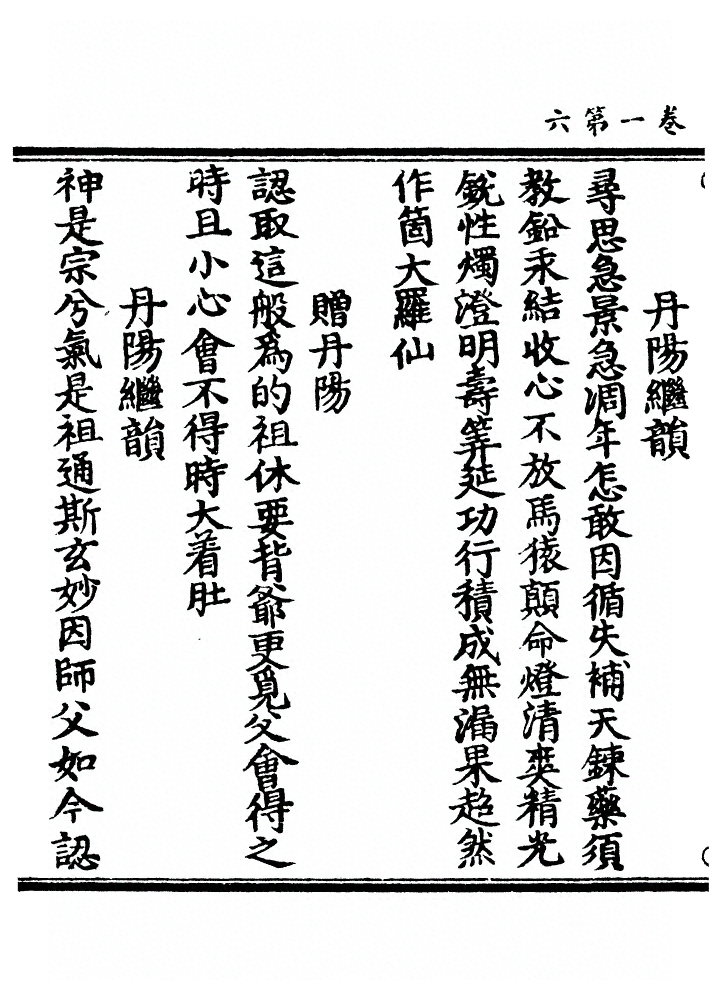 卷一第六
丹陽繼韻
尋思急景急凋年怎敢因循失補天鍊藥須
教鉛汞結收心不放馬猿顛命燈清爽精光
銳性燭澄明壽筭延功行積成無漏果超然
作箇大羅仙
贈丹陽
認取這般爲的祖休要背爺更覓父會得之
時且小心會不得時大着肚
丹陽繼韻
神是宗兮氣是祖通斯玄妙因師父如今認